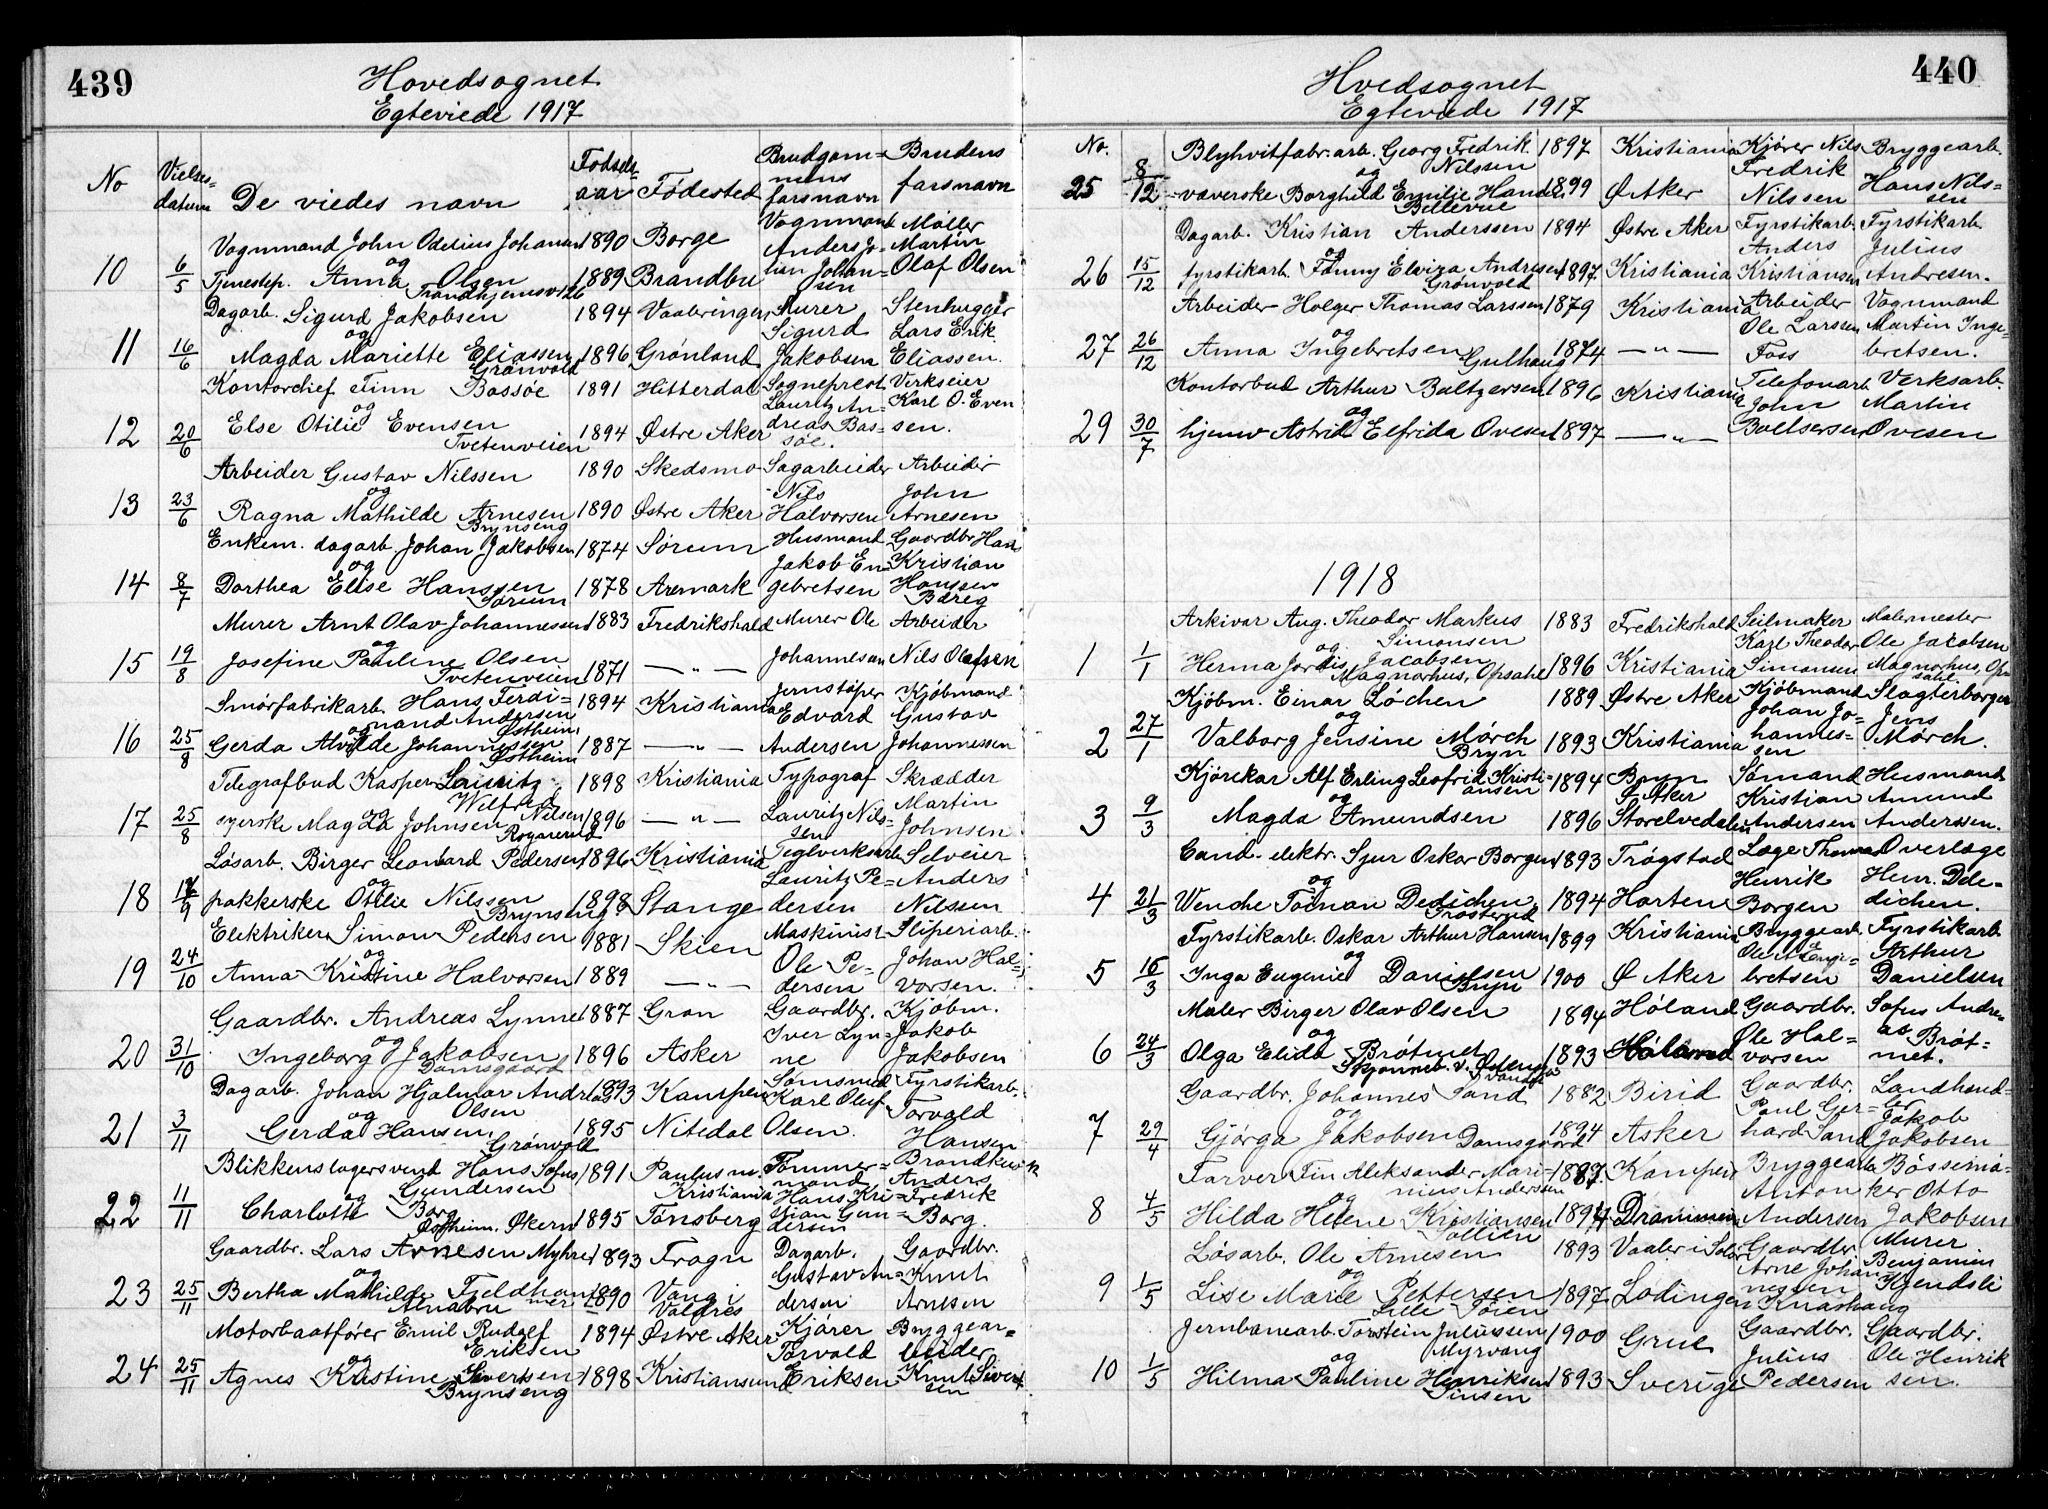 439
Hovedsognet
Egteviede 1917
No Vielses-datum De viedes navn Fødselsaar Fødested Brudgommens farsnavn Brudens farsnavn
10 6/5 Vognmand John Odelius Johansen 1890 Borge Vognmand Anders Jo- Møller Martin
og
Tjenestep. Anna Olsen 1889 Brandbu lian Johansen Olaf Olsen
Trondhjemsv 26
11 16/6 Dagarb. Sigurd Jakobsen 1894 Vaaleringen Murer Sigurd Stenhugger Lars Erik
og
Magda Mariette Eliassen 1896 Grønland Jakobsen Eliassen.
Grønvold
12 20/6 Kontorchef Finn Bassøe 1891 Hitterdal Sogneprest Lauritz An- Verkseier Karl O. Even
og
Else Otilie Evensen 1894 Østre Aker dreas Bassøe. sen.
Tvetenveien
13 23/6 Arbeider Gustav Nilssen 1890 Skedsmo Sagarbeider Nils Arbeider John
og
Ragna Mathilde Arnesen 1890 Østre Aker Halvorsen Arnesen
Brynseng
14 8/7 Enkem. dagarb. Johan Jakobsen 1874 Sørum Husmand Jakob En- Gaardbr Hans Kristian
og
Dorthea Elise Hanssen 1878 Aremark gebretsen Hanssen Bæreg
Sørum
15 19/8 Murer Arnt Olav Johannessen 1883 Fredrikshald Murer Ole Arbeider
og
Josefine Pauline Olsen 1871 — " — Johannesen Nils Olafsen
Tvetenveien
16 25/8 Smørfabrikarb. Hans Ferdi- 1894 Kristiania Jernstøper Edvard Kjøbmand Gustav
nand Andersen
og Østheim
Gerda Alvilde Johannessen 1887 — " — Andersen Johannessen
Østheim
17 25/8 Telegrafbud Kasper Lauritz 1898 Kristiania Typograf Skrædder
Wilfred Nilsen
og
syerske Magda Johnsen 1896 — " — Lauritz Nilssen Martin Johnsen
18 17/9 Løsarb. Birger Leonard Pedersen 1896 Kristiania Teglverksarb Lauritz Pe- Selveier Anders
og
pakkerske Otilie Nilssen 1898 Stange dersen Nilssen
Brynseng
19 24/10 Elektriker Simon Pedersen 1881 Skien Maskinist Ole Pe- Sliperiarb. Johan Hal-
og
Anna Kristine Halvorsen 1889 — " — dersen vorsen.
20 31/10 Gaardbr. Andreas Lynne 1887 Gran Gaardbr. Iver Lyn- Kjøbm. Jakob
og
Ingeborg Jakobsen 1896 Asker ne Jakobsen
Damsgaard
21 3/11 Dagarb. Johan Hjalmar Andreas 1893 Kampen Sømsmed Karl Oluf Fyrstikarb. Torvald
Olsen
og
Gerda Hansen 1895 Nitedal Olsen. Hansen
Grønvold
22 11/11 Blikkenslagersvend Hans Sofus 1891 Paulus m. Kristiania Tømmer-mand Hans Kri- Brandkusk Anders
Gundersen
og
Charlotte Borg 1895 Tønsberg stian Gundersen Fredrik Borg.
Østheim. Økern
23 25/11 Gaardbr. Lars Arnesen Myhre 1893 Frogn Dagarb. Gustav An- Gaardbr. Knut
og
Bertha Mathilde Fjeldhammer 1890 Vang i Valdres dersen Arnesen
Alnabru
24 25/11 Motorbaatfører Emil Rudolf 1894 Østre Aker Kjører Torvald Bryggear-beider
Eriksen
og
Agnes Kristine Sivertsen 1898 Kristiansund Eriksen Knut Sivertsen
Brynseng
440
Hvedsognet
Egteviede 1917
No.
25 8/12 Blyhvitfabr. arb. Georg Fredrik 1897 Kristiania Kjører Nils Fredrik Bryggearb.
Nilssen
og
væverske Borghild Emilie Hansen 1899 Ø Aker Nilssen Hans Nils-sen
Bellevue
26 15/12 Dagarb. Kristian Anderssen 1894 Østre Aker Fyrstikarb. Anders Fyrstikarb. Julius
og
fyrstikarb. Fanny Elvira Andresen 1897 Kristiania Kristiansen Andresen.
Grønvold
27 26/12 Arbeider Holger Thomas Larssen 1879 Kristiania Arbeider Ole Larssen Vognmand Martin Inge-
og
Anna Ingebretsen 1874 — " — Foss bretsen.
Gulhaug
29 30/7 Kontorbud Arthur Baltzersen 1896 Kristiania Telefonarb John Verksarb. Martin
og
hjemv Astrid Elfrida Ovesen 1897 — " — Baltsersen Ovesen
1918
1 1/1 Arkivar Aug. Theodor Markus 1883 Fredrikshald Seilmaker Karl Theodor Malermester Ole Jacobsen
Simonsen
og
Herma Jordis Jacobsen 1896 Kristiania Simonsen Magnorhus, Opsahl
Magnorhus, Opsahl
2 27/1 Kjøbm. Einar Løchen 1889 Østre Aker Kjøbmand Johan Jo- Slagterborger Jens
og
Valborg Jensine Mørch 1893 Kristiania hannes-sen Mørch.
Bryn
3 9/3 Kjørekar Alf Erling Leofrid Kristi- 1894 Bryn Ø Aker Sømand Kristian Husmand Amund
ansen
og
Magda Amundsen 1896 Storelvedalen Andersen Anderssen.
4 21/3 Cand. elektr. Sjur Oskar Borgen 1893 Trøgstad Læge Thomas Henrik Overlæge Henr. De-
og
Wenche Dedichen 1894 Horten Borgen dichen.
Trosterud
5 16/3 Fyrstikarb. Oskar Arthur Hansen 1899 Kristiania Bryggearb. Ole H Enge- Fyrstikarb. Arthur
og
Inga Eugenie Danielsen 1900 Ø Aker bretsen Danielsen
Bryn
6 24/3 Maler Birger Olav Olsen 1894 Høland Gaardbr. Ole Hal- Sofus Andre-
og
Olga Elida Brøtnet 1893 Høland vorsen as Brøt-net.
7 29/4 Gaardbr. Johannes Sand 1882 Birid Gaardbr. Paul Ger- Landhand-ler Jakob
og
Gjørga Jakobsen Damsgaard 1894 Asker hard Sand Jakobsen
8 4/5 Farver Fin Aleksander Mari- 1887. Kampen Bryggearb Anton Bøssema-ker Otto
nius Andersen
og
Hilda Helene Kristiansen 1894 Drammen Andersen Jakobsen
Sollien
9 1/5 Løsarb. Ole Arnesen 1893 Vaaler i Solør Gaardbr. Arne Johan Murer Benjamin
og
Lise Marie Pettersen 1897 Lødingen nessen Knashaug Kjendsli
Lille Tøien
10 1/5 Jernbanearb. Torstein Juliussen 1900 Grue Gaardbr. Julius Gaardbr. Ole Henrik
Myrvang
og
Hilma Pauline Henriksen 1893 Sverige Pedersen sen.
Sinsen